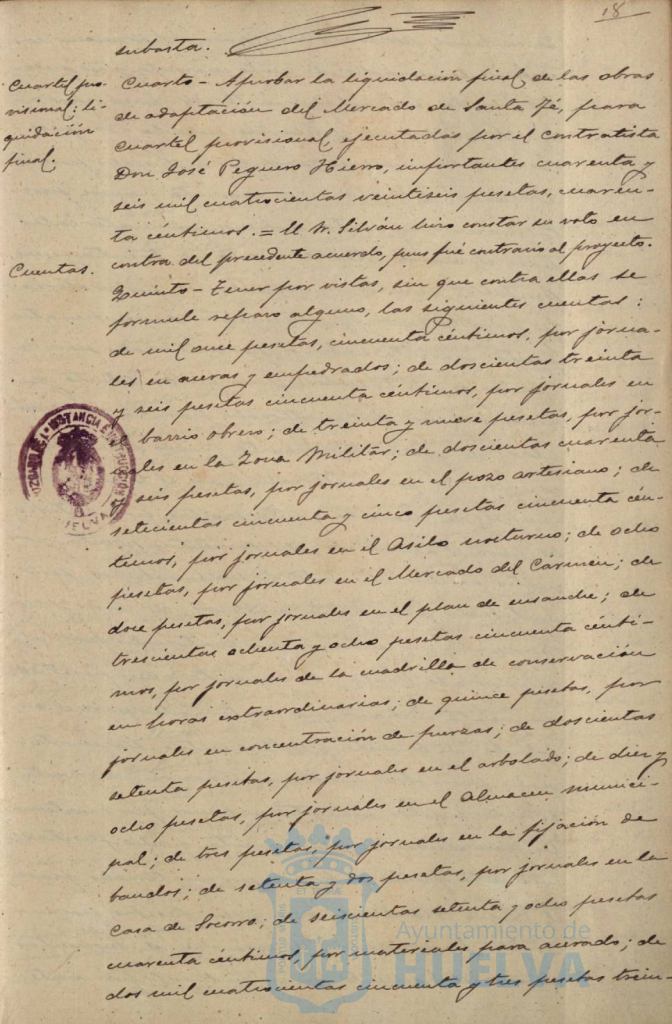 18
subasta.
Cuartel pro-
visional: li-
quidación
final.
Cuarto - Aprobar la liquidación final de las obras
de adaptación del Mercado de Santa Fé, para
cuartel provisional, ejecutadas por el contratista
Don José Peguero Hierro, importantes cuarenta y
seis mil cuatrocientas veintiseis pesetas, cuaren-
ta céntimos. = El Sr. Silván hizo constar su voto en
contra del precedente acuerdo, pues fué contrario al proyecto.
Cuentas.
Quinto - Tener por vistas, sin que contra ellas se
formule reparo alguno, las siguientes cuentas:
de mil once pesetas, cincuenta céntimos, por jorna-
les en aceras y empedrados; de doscientas treinta
y seis pesetas cincuenta céntimos, por jornales en
el barrio obrero; de treinta y nueve pesetas, por jor-
nales en la Zona Militar; de doscientas cuarenta
y seis pesetas, por jornales en el pozo artesiano; de
setecientas cincuenta y cinco pesetas cincuenta cén-
timos, por jornales en el Asilo nocturno; de ocho
pesetas, por jornales en el Mercado del Cármen; de
doce pesetas, por jornales en el plan de ensanche; de
trescientas ochenta y ocho pesetas cincuenta cénti-
mos, por jornales de la cuadrilla de conservación
en horas extraordinarias; de quince pesetas, por
jornales en concentración de fuerzas; de doscientas
setenta pesetas, por jornales en el arbolado; de diez y
ocho pesetas, por jornales en el Almacen munici-
pal; de tres pesetas, por jornales en la fijación de
bandos; de setenta y dos pesetas, por jornales en la
Casa de Socorro; de seiscientas setenta y ocho pesetas
cuarenta céntimos, por materiales para acerado; de
dos mil cuatrocientas cincuenta y tres pesetas trein-
Ayuntamiento de
HUELVA